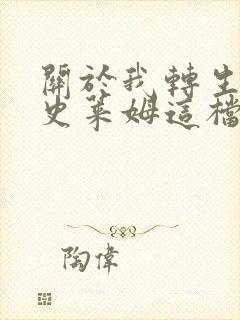 關於我轉生
史萊姆這檔
陶偉